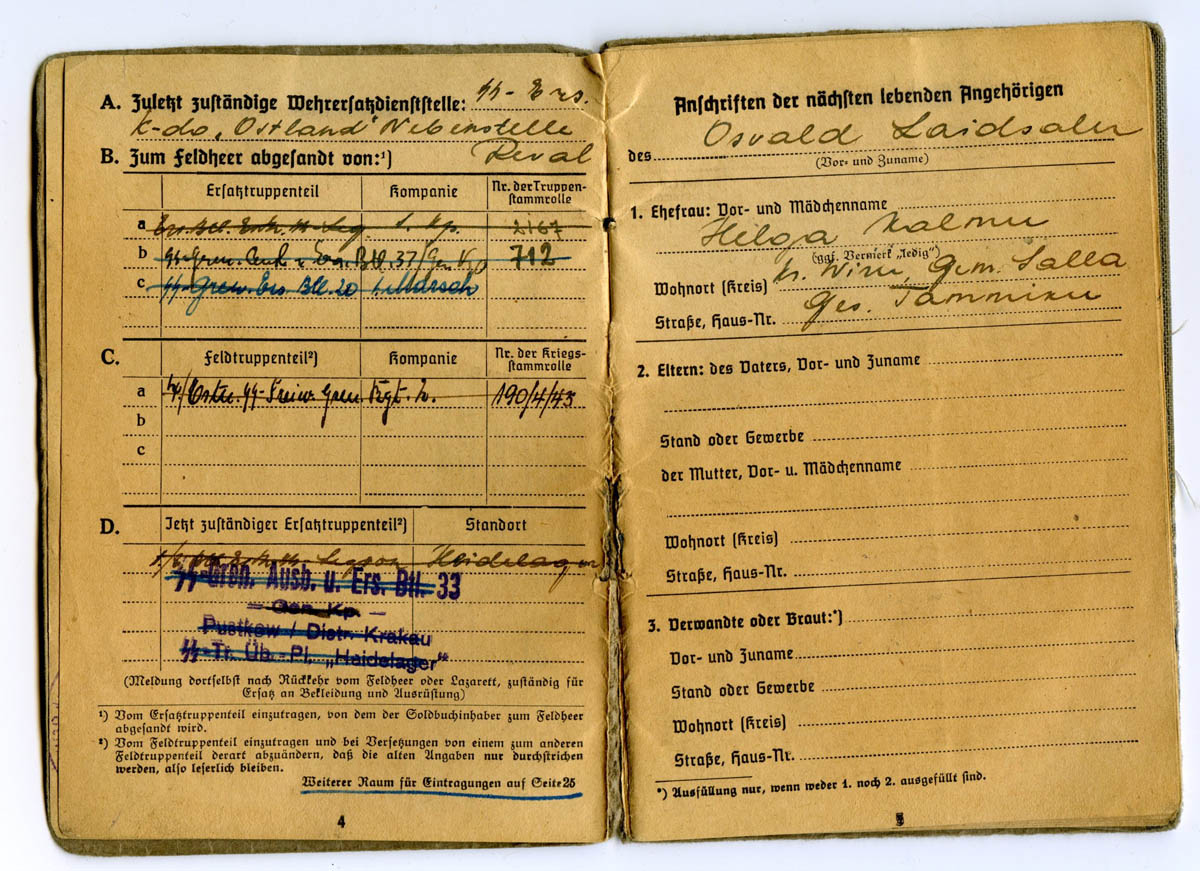 A. Zuletzt zuständige Wehrersatzdienststelle: ᛋᛋ- Ers.
K-do „Ostland" Nebenstelle
Reval
B. Zum Feldheer abgesandt von:¹)
Ersatztruppenteil Kompanie Nr. der Truppen-
stammrolle
a Kp. 2167
b ᛋᛋ-Gren. Ausb. u. Ers. Btl. 37/Gen Kp 712
c ᛋᛋ-Gren. Ers Btl. 20 1. Marsch
C. Feldtruppenteil²) Kompanie Nr. der Kriegs-
stammrolle
a Estn. ᛋᛋ-Freiw. Gren Rgt. 190/4/43
b
c
D. Jetzt zuständiger Ersatztruppenteil²) Standort
Heidelager
ᛋᛋ-Gren. Ausb. u. Ers. Btl. 33
— Gen. Kp. —
Pustkow / Distr. Krakau
ᛋᛋ-Tr. Üb. Pl. „Heidelager"
(Meldung dortselbst nach Rückkehr vom Feldheer oder Lazarett, zuständig für
Ersatz an Bekleidung und Ausrüstung)
¹) Vom Ersatztruppenteil einzutragen, von dem der Soldbuchinhaber zum Feldheer
abgesandt wird.
²) Vom Feldtruppenteil einzutragen und bei Versetzungen von einem zum anderen
Feldtruppenteil derart abzuändern, daß die alten Angaben nur durchstrichen
werden, also leserlich bleiben.
Weiterer Raum für Eintragungen auf Seite 25
4
Anschriften der nächsten lebenden Angehörigen
des Osvald Laidsalu
(Vor- und Zuname)
1. Ehefrau: Vor- und Mädchenname
Helga Kalmu
(ggf. Vermerk „ledig")
Wohnort (Kreis) Kr. Wiru, Gem. Salla
Straße, Haus-Nr. Ges. Tammiku
2. Eltern: des Vaters, Vor- und Zuname
Stand oder Gewerbe
der Mutter, Vor- u. Mädchenname
Wohnort (Kreis)
Straße, Haus-Nr.
3. Verwandte oder Braut:*)
Vor- und Zuname
Stand oder Gewerbe
Wohnort (Kreis)
Straße, Haus-Nr.
*) Ausfüllung nur, wenn weder 1. noch 2. ausgefüllt sind.
5